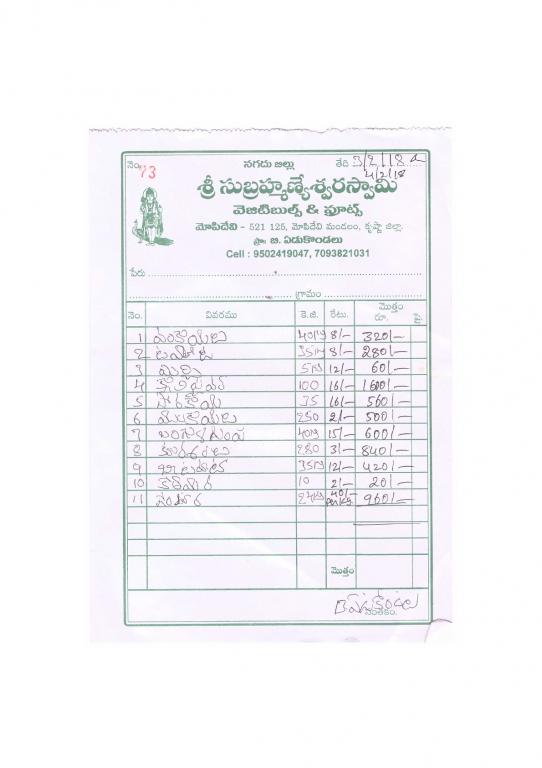 నెం. 73 నగదు బిల్లు తేది 3/2/18
4/2/18
శ్రీ సుబ్రహ్మణ్యేశ్వరస్వామి
వెజిటిబుల్స్ & ఫ్రూట్స్
మోపిదేవి - 521 125, మోపిదేవి మండలం, కృష్ణా జిల్లా.
ప్రొ: బి. ఏడుకొండలు
Cell : 9502419047, 7093821031
పేరు
గ్రామం
నెం. వివరము కె.జి. రేటు. మొత్తం రూ. పై.
1 వంకాయలు 40 8/- 320/-
2 టమోట 35 8/- 280/-
3 మిర్చి 5 12/- 60/-
4 100 16/- 1600/-
5 35 16/- 560/-
6 250 2/- 500/-
7 40 15/- 600/-
8 280 3/- 840/-
9 35 12/- 420/-
10 10 2/- 20/-
11 24 40/- 960/-
మొత్తం
సంతకం.